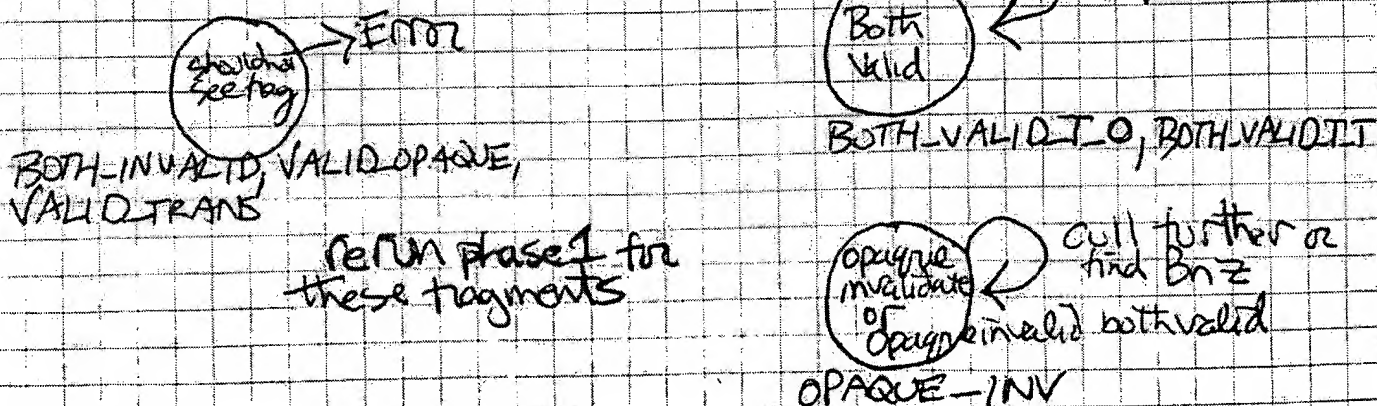 Error
should not
see frag
BOTH_INVALID, VALID_OPAQUE,
VALID_TRANS
rerun phase 1 for
these fragments
Both
Valid
BOTH_VALID_T_O, BOTH_VALID_T_T
opaque
invalidate
or
opaque invalid both valid
cull further or
find BnZ
OPAQUE_INV